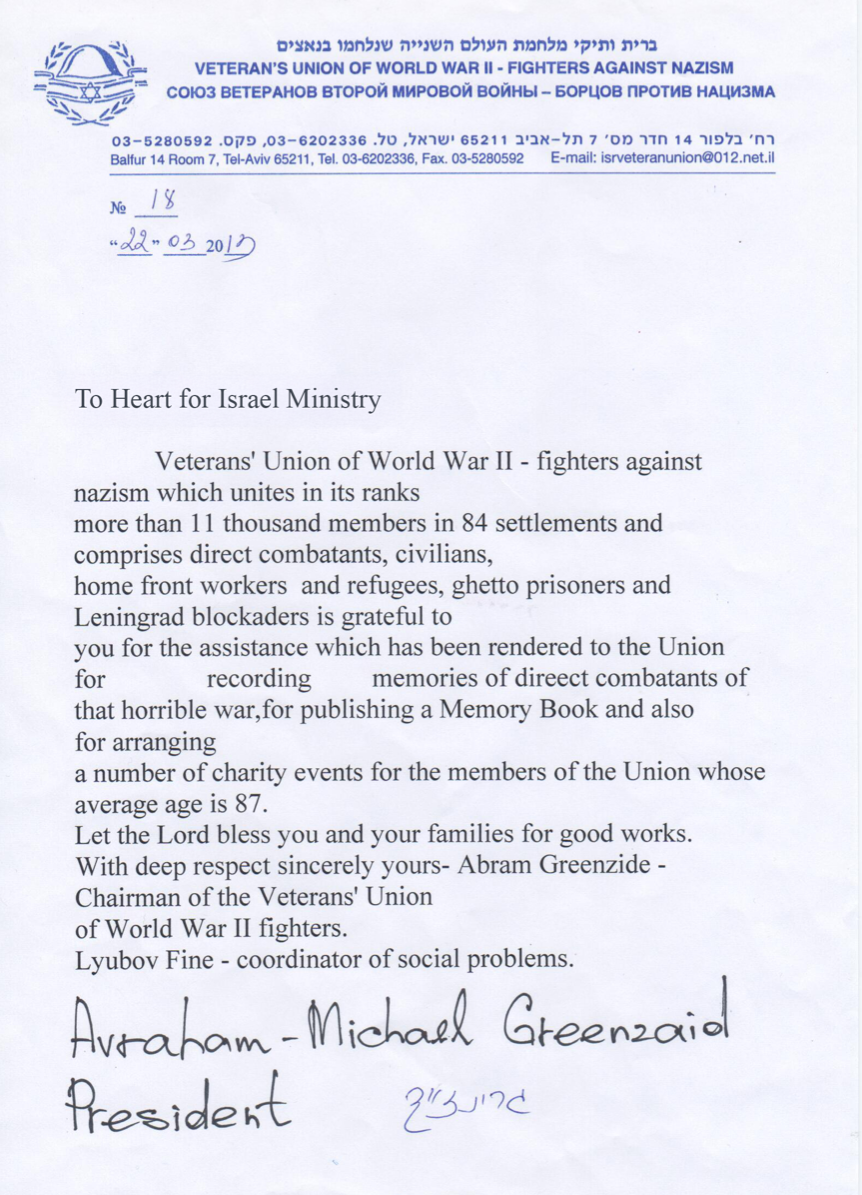 ברית ותיקי מלחמת העולם השנייה שנלחמו בנאצים
VETERAN'S UNION OF WORLD WAR II - FIGHTERS AGAINST NAZISM
СОЮЗ ВЕТЕРАНОВ ВТОРОЙ МИРОВОЙ ВОЙНЫ – БОРЦОВ ПРОТИВ НАЦИЗМА
רח' בלפור 14 חדר מס' 7 תל-אביב 65211 ישראל, טל. 03-6202336, פקס. 03-5280592
Balfur 14 Room 7, Tel-Aviv 65211, Tel. 03-6202336, Fax. 03-5280592 E-mail: isrveteranunion@012.net.il
№ 18
“22” 03 20
To Heart for Israel Ministry
Veterans' Union of World War II - fighters against
nazism which unites in its ranks
more than 11 thousand members in 84 settlements and
comprises direct combatants, civilians,
home front workers and refugees, ghetto prisoners and
Leningrad blockaders is grateful to
you for the assistance which has been rendered to the Union
for recording memories of direect combatants of
that horrible war,for publishing a Memory Book and also
for arranging
a number of charity events for the members of the Union whose
average age is 87.
Let the Lord bless you and your families for good works.
With deep respect sincerely yours- Abram Greenzide -
Chairman of the Veterans' Union
of World War II fighters.
Lyubov Fine - coordinator of social problems.
Avraham - Michael Greenzaid
President